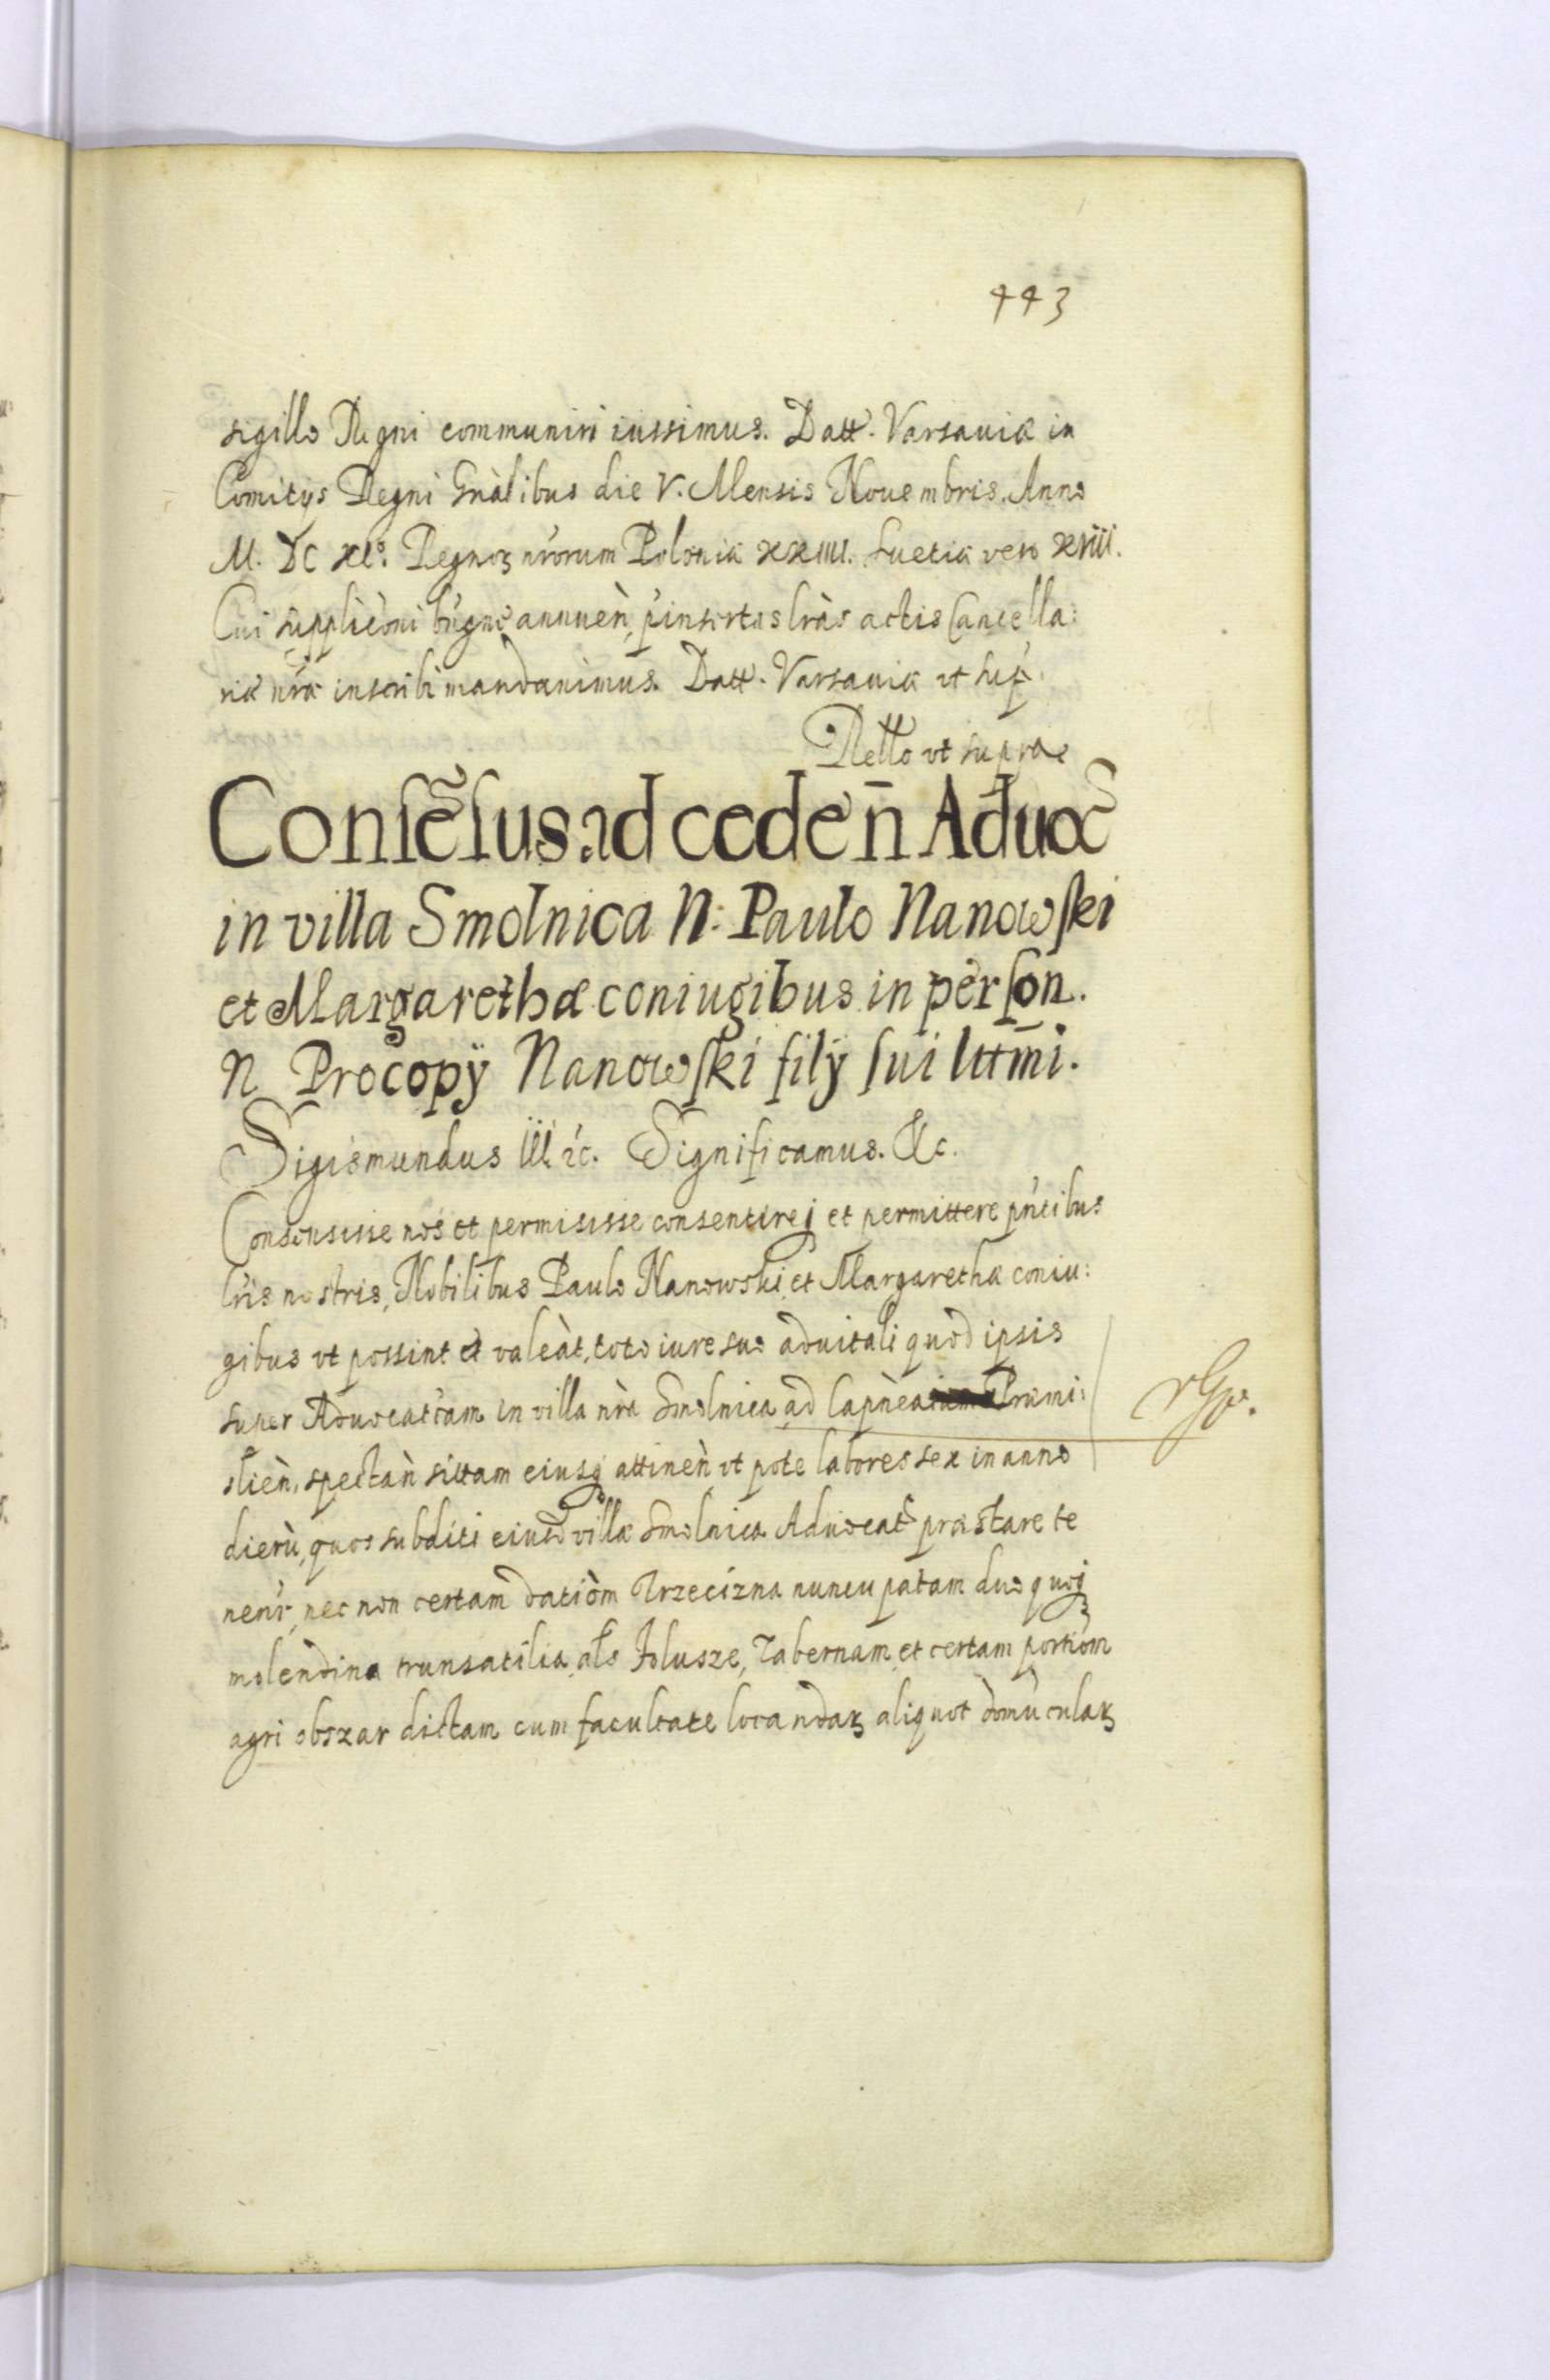 443
sigillo Regni communiri iussimus. Datt. Varsauiæ in
Comitijs Regni Gnàlibus die V. Mensis Nouembris. Anno
M. DC XI.º Regnoꝝ nr̃orum Poloniæ XXIIII. Suetiæ vero XVIII.
Cui supplicòni bñigne annueǹ, p̃insertas lràs actis Cancella:
riæ nr̃æ inscribi mandauimus. Datt. Varsauiæ vt sup̃.
Rello vt supra
Conse᷉sus ad ceden̄ Aduoc̃
in villa Smolnica N: Paulo Nanowski
et Margarethæ coniugibus in person.
N Procopÿ Nanowski filÿ sui lttm̄i.
Sigismundus III. ꝛc. Significamus. &c.
Consensisse nos et permisisse consentireq et permittere pñtibus
lr̃is nostris, Nobilibus Paulo Nanowski et Margarethæ coniu:
gibus vt possint et valeàt, toto iure suo aduitali quod ipsis
super Aduocatiam in villa nr̀a Smolnica ad Capǹea Præmi:
slień, spectaǹ sittam eiusq attineǹ vt pote labores sex in anno
dierù, quos subditi eiusd villæ Smolnica Aduocat̃ præstare te
nent̃, nec non certam datiòm Trzecizna nuncupatam duo quoq
molendina trunsatilia, als Folusze, Tabernam et certam portiòm
agri obszar dictam cum facultate locandaꝝ aliquot domùculaꝝ